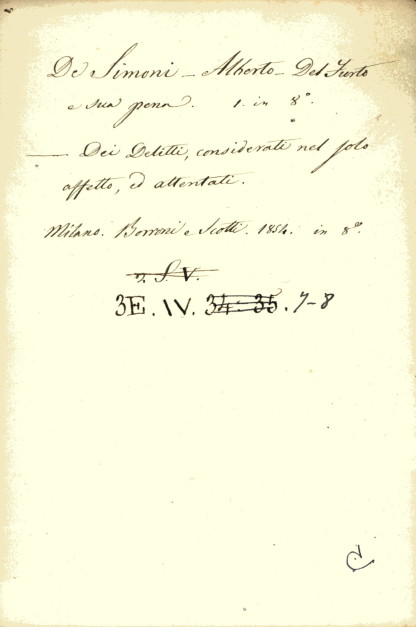 De Simoni – Alberto – Del Furto
e sua pena. 1. in 8°.
—— Dei Delitti, considerati nel solo
affetto, ed attentati.
Milano. Borroni e Scotti. 1854. in 8°.
S. V.
3E. IV. 34-35. 7-8